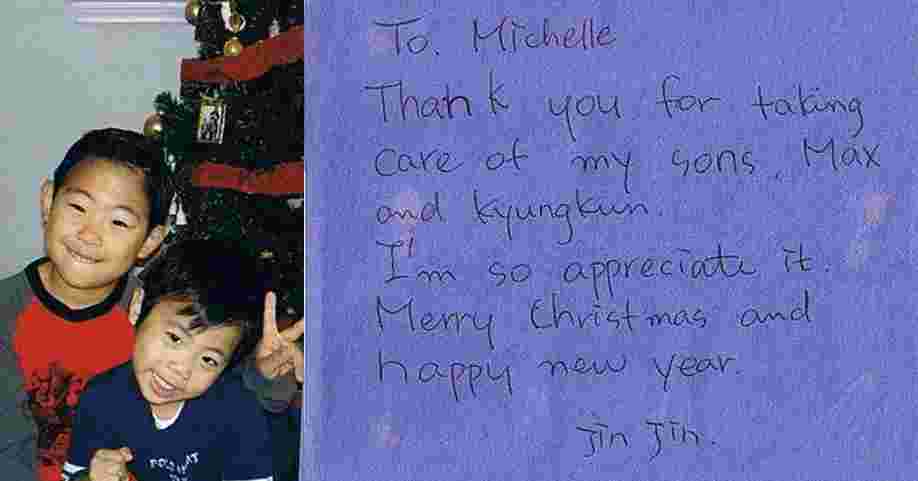 To. Michelle
Thank you for taking
care of my sons, Max
and kyungkun.
I'm so appreciate it.
Merry Christmas and
happy new year.
Jin Jin.